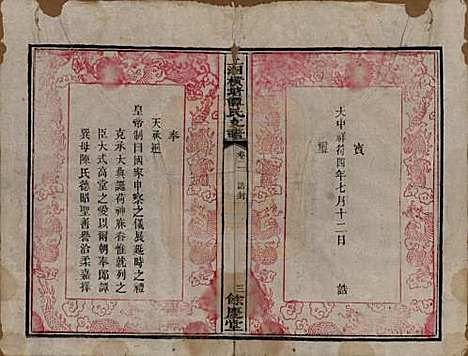 寶
大中祥符四年七月十二日
誥
璽
湘
譚氏
譜
卷一
誥封
三
餘慶堂
奉
天承運
皇帝制曰國家申
之儀展延時之禮
克承大典
荷神庥眷惟就列之
臣大式高堂之愛以爾朝奉郎譚
異母陳氏德昭聖善譽洽柔嘉擇